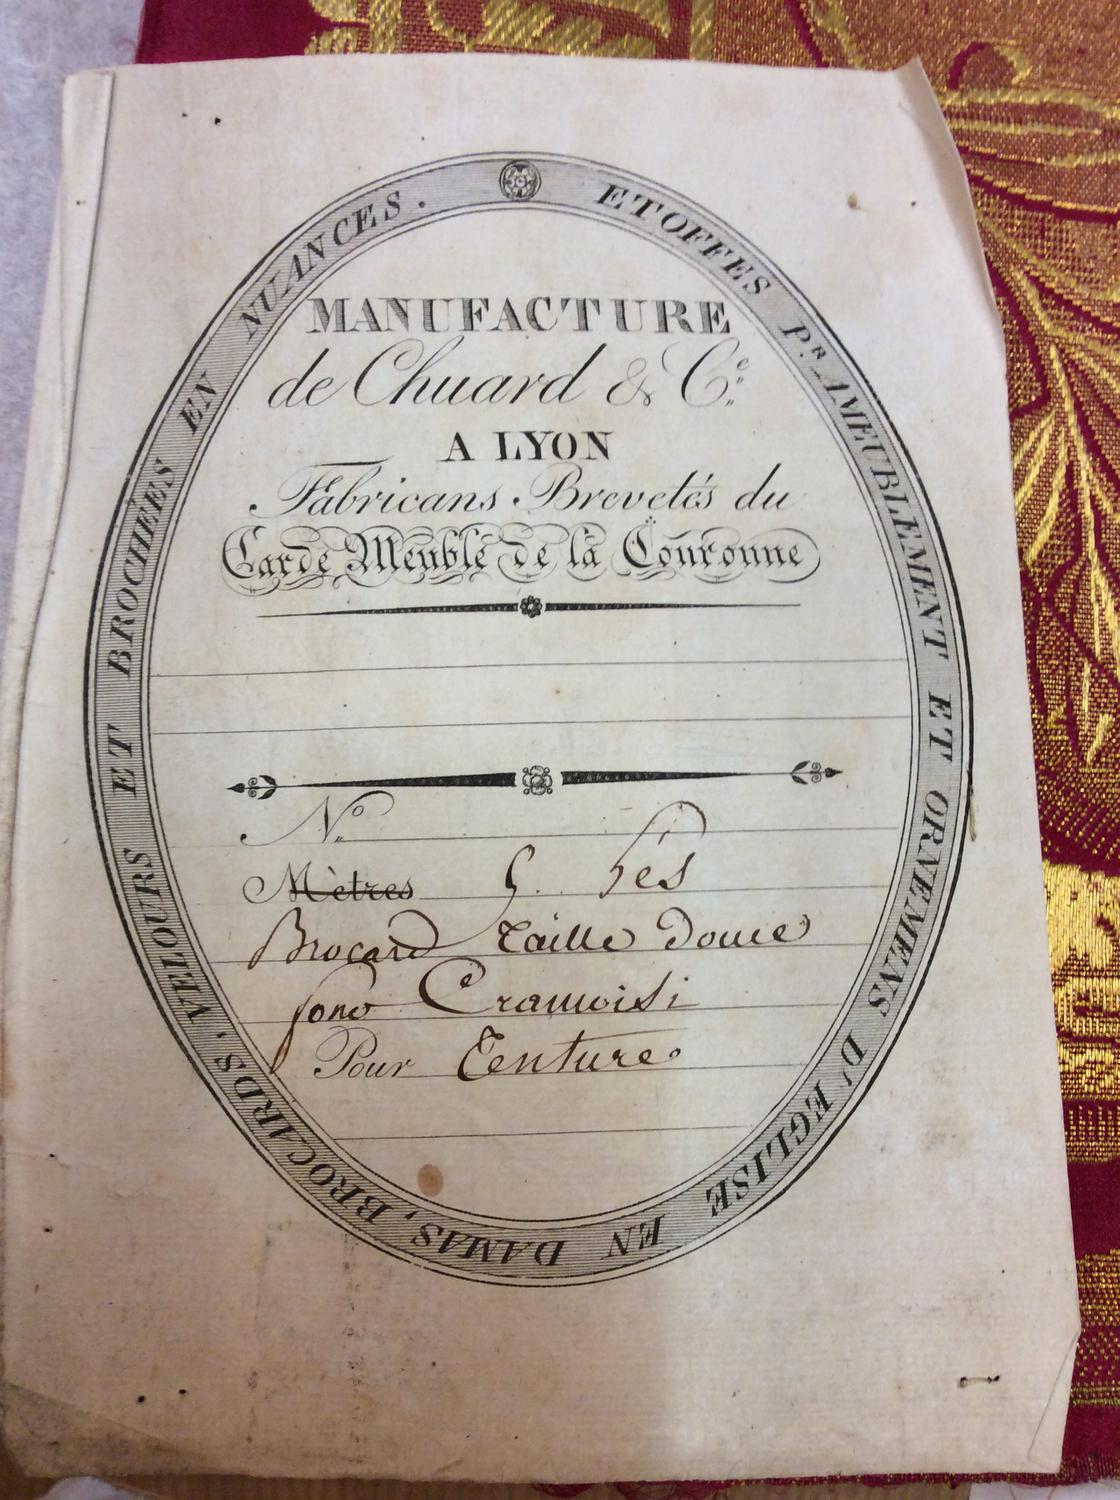 ETOFFES PR. AMEUBLEMENT ET ORNEMENS D'EGLISE EN DAMAS, BROCARDS, VELOURS ET BROCHÉES EN NUANCES.
MANUFACTURE
de Chuard & Ce.
A LYON
Fabricans Brevetés du
Garde Meuble de la Couronne
No.
Mètres 5. Lés
Brocard taille douce
fond Cramoisi
Pour Tenture.